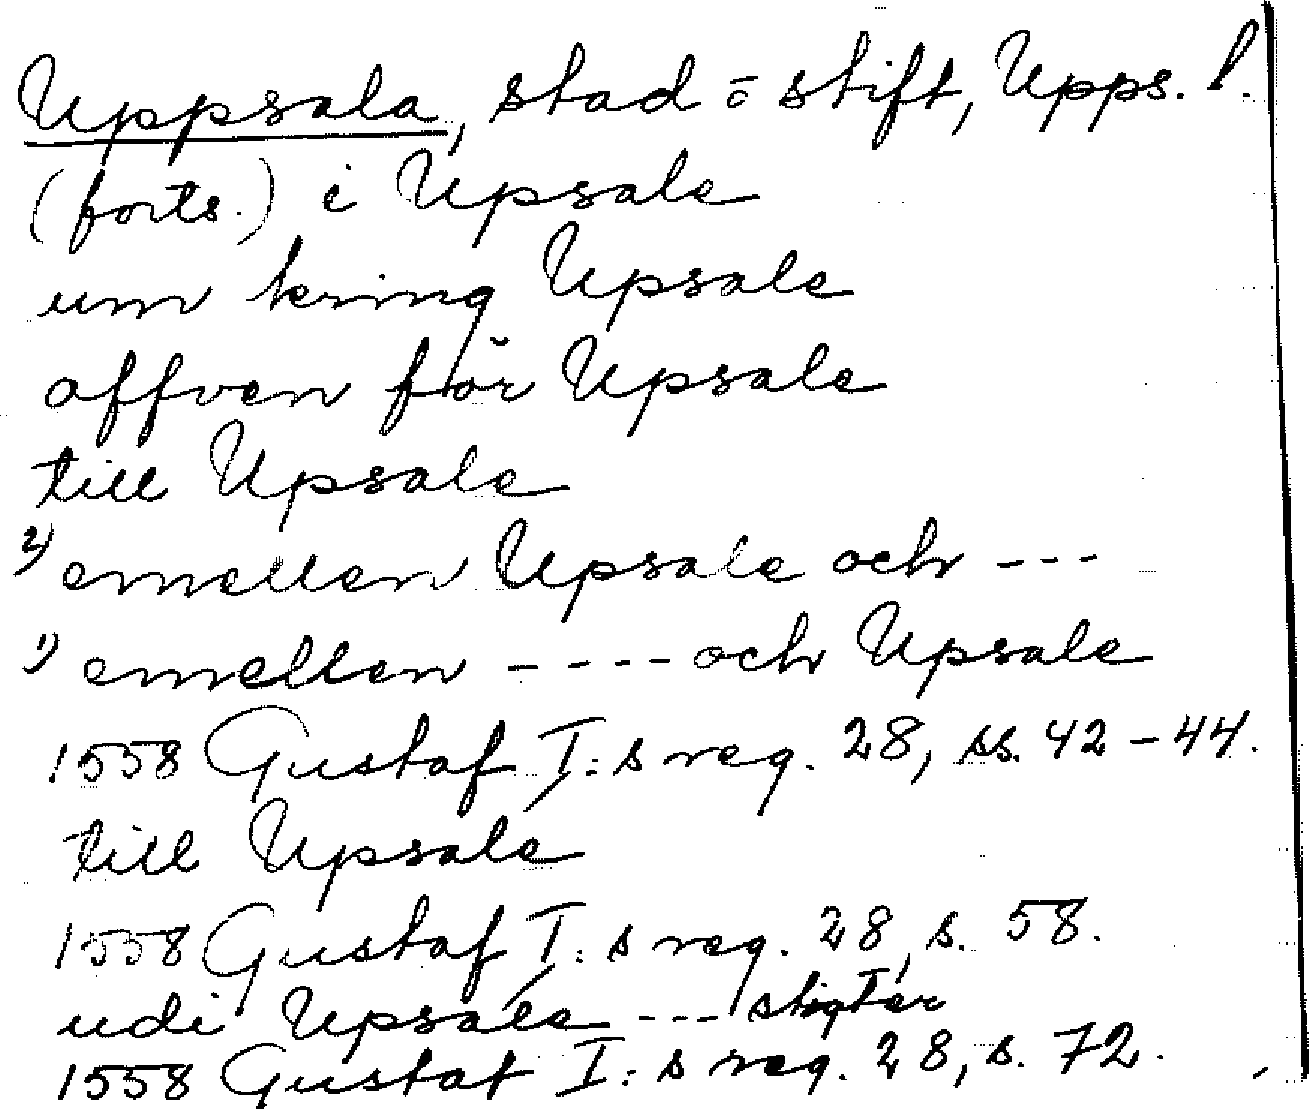 Uppsala, stad o stift, Upps. l.
(forts.) i Upsale
um kring Upsale
offven för Upsale
till Upsale
2) emellen Upsale och ---
1) emellen ---- och Upsale
1558 Gustaf I:s reg. 28, ss. 42-44.
till Upsale
1558 Gustaf I:s reg. 28, s. 58.
udi Upsale --- stigter
1558 Gustaf I:s reg. 28, s. 72.